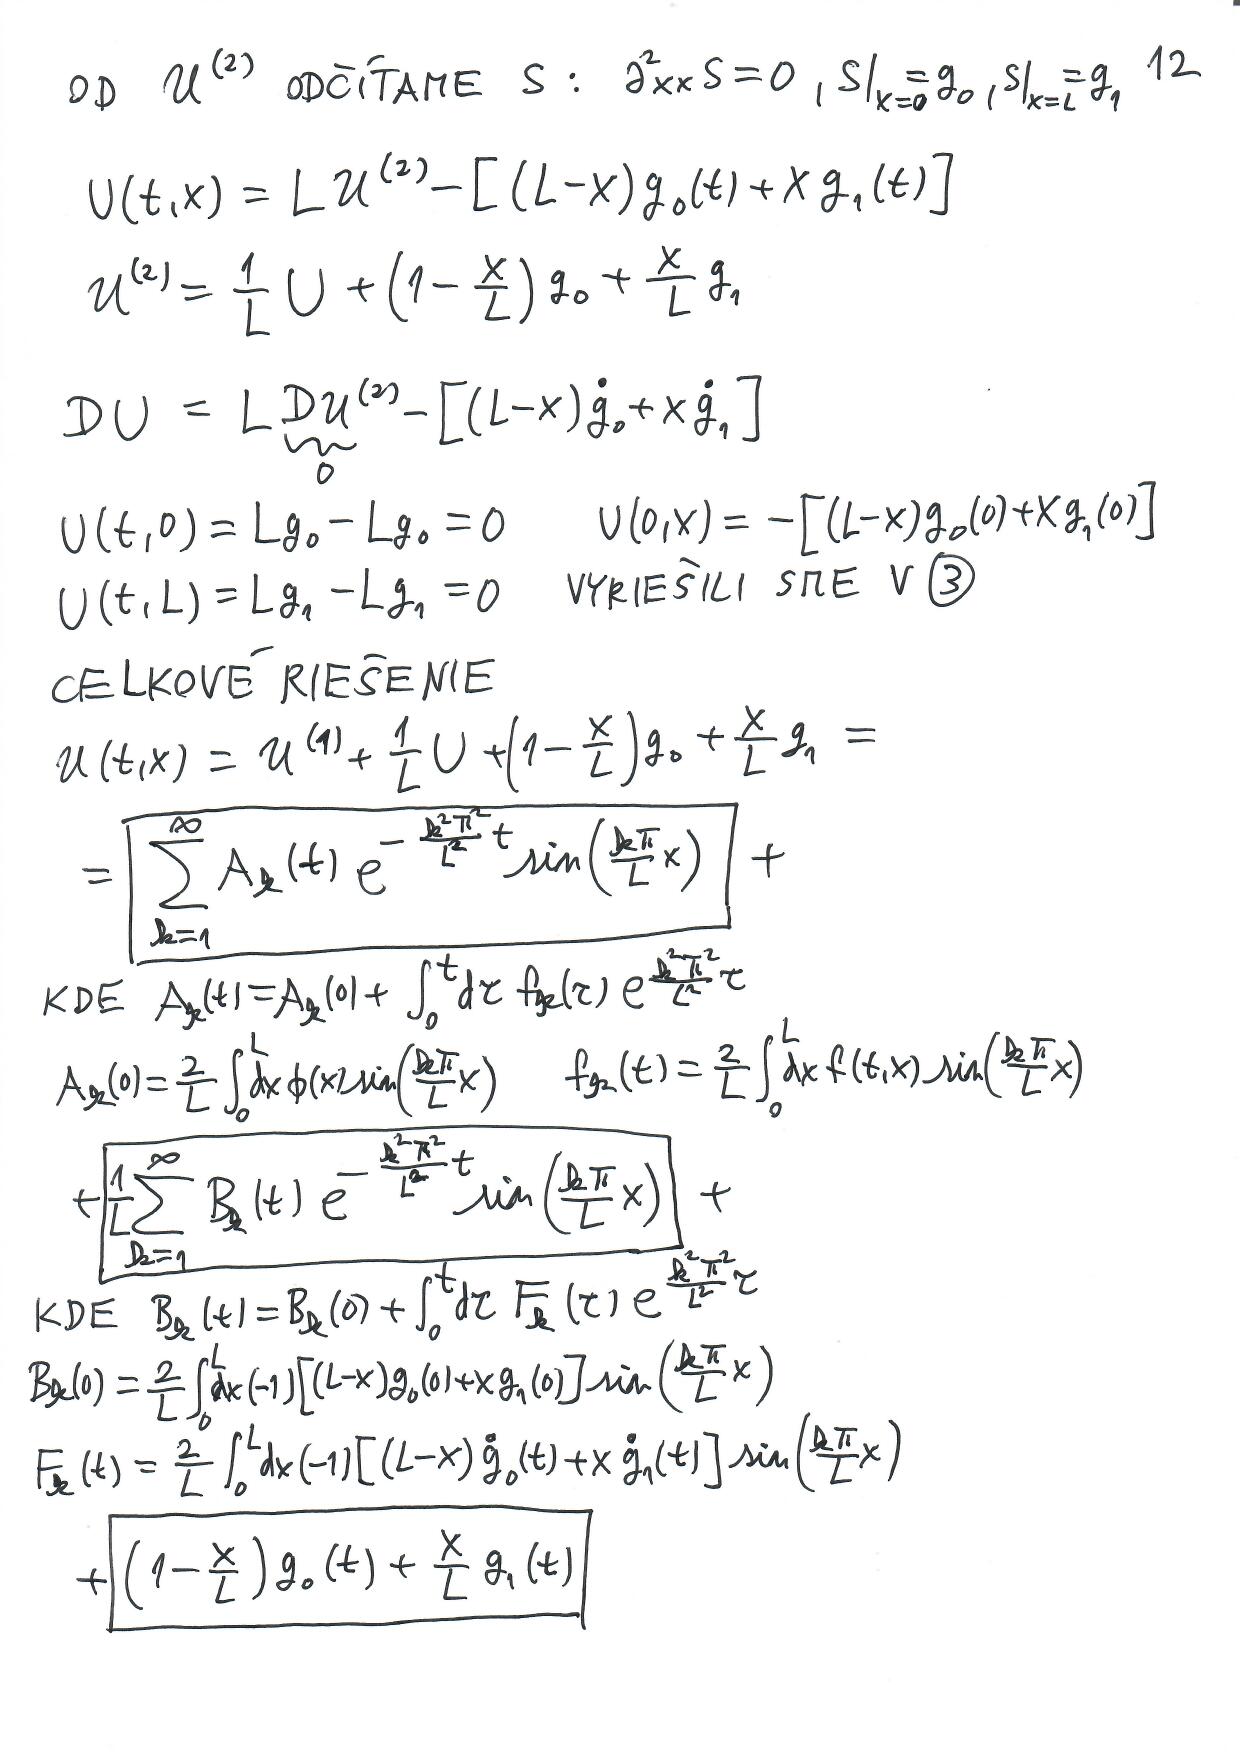 OD u⁽²⁾ ODČÍTAME S : ∂²ₓₓS=0 , S|ₓ₌₀=g₀ , S|ₓ₌L=g₁ 12
U(t,x) = L u⁽²⁾ − [(L−x)g₀(t)+x g₁(t)]
u⁽²⁾ = 1/L U + (1−x/L) g₀ + x/L g₁
DU = L Du⁽²⁾ − [(L−x)ġ₀+xġ₁]
0
U(t,0) = Lg₀−Lg₀ =0 U(0,x) = −[(L−x)g₀(0)+xg₁(0)]
U(t,L) = Lg₁−Lg₁ =0 VYRIEŠILI SME V ③
CELKOVÉ RIEŠENIE
u(t,x) = u⁽¹⁾ + 1/L U + (1−x/L) g₀ + x/L g₁ =
= ∑_{k=1}^{∞} A_k(t) e^{−k²π²/L² t} sin(kπ/L x) +
KDE A_k(t)=A_k(0)+ ∫₀ᵗdτ f_k(τ) e^{k²π²/L² τ}
A_k(0)= 2/L ∫₀ᴸdx ϕ(x) sin(kπ/L x) f_k(t) = 2/L ∫₀ᴸdx f(t,x) sin(kπ/L x)
+ 1/L ∑_{k=1}^{∞} B_k(t) e^{−k²π²/L² t} sin(kπ/L x) +
KDE B_k(t)=B_k(0)+∫₀ᵗdτ F_k(τ) e^{k²π²/L² τ}
B_k(0) = 2/L ∫₀ᴸdx(−1)[(L−x)g₀(0)+xg₁(0)] sin(kπ/L x)
F_k(t) = 2/L ∫₀ᴸdx(−1)[(L−x)ġ₀(t)+xġ₁(t)] sin(kπ/L x)
+ (1−x/L) g₀(t) + x/L g₁(t)